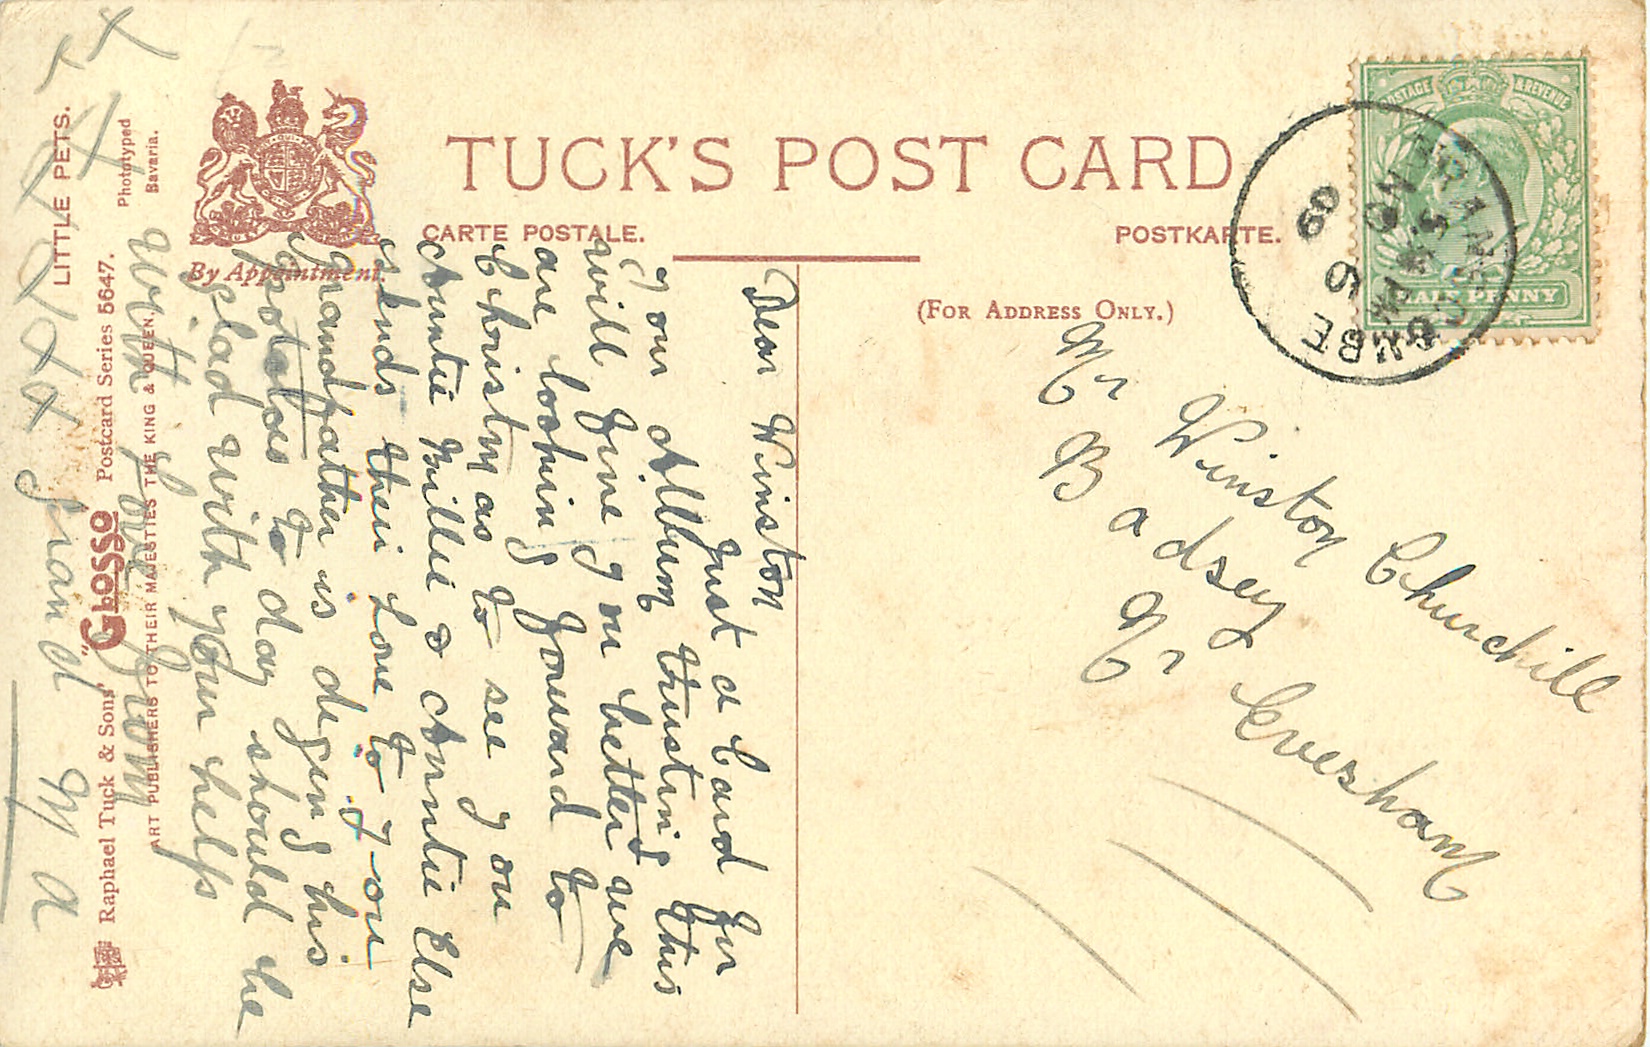 TUCK'S POST CARD
CARTE POSTALE.
POSTKARTE.
(FOR ADDRESS ONLY.)
By Appointment
LITTLE PETS.
Phototyped
Bavaria.
Raphael Tuck & Sons' "GLOSSO" Postcard Series 5647.
ART PUBLISHERS TO THEIR MAJESTIES THE KING & QUEEN.
POSTAGE & REVENUE
HALF PENNY
BRANSCOMBE
NO 6
09
Mr Winston Churchill
Badsey
Nr Evesham
Dear Winston
Just a Card for
your Album trusting this
will find you better we
are looking forward to
Christmas to see you
Auntie Millie & Auntie Else
sends their Love to you
grandfather is deging his
potatoes to day should be
glad with your help
with love from
Grand Ma